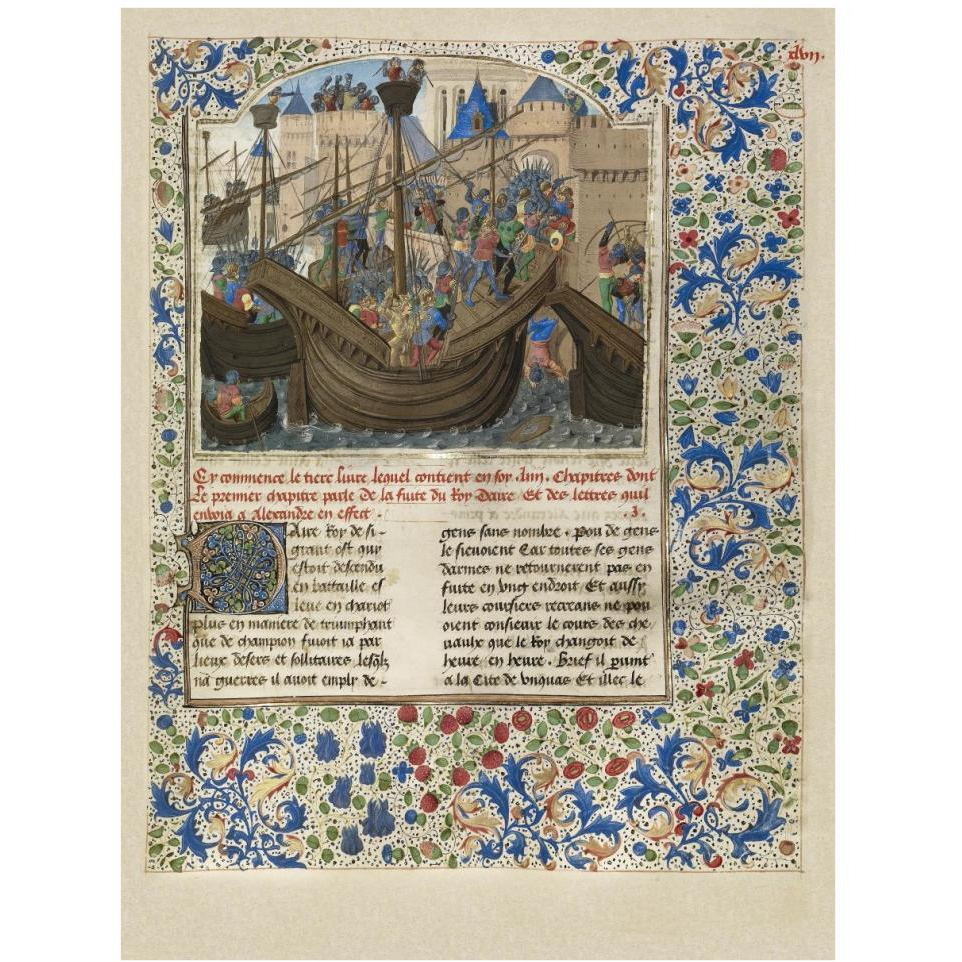 xlvii.
Cy commence le tiers livre lequel contient en soy .xiiii. Chapitres dont
Le premier chapitre parle de la fuite du Roy Daire Et des lettres quil
envoia a Alexandre en effect .
Daire Roy de si-
grant ost quy
estoit descendu
en battaille es
leue en chariot
plus en maniere de triumphant
que de champion fuioit ia par
lieux desers et sollitaires lesqlz
na guerres il avoit emply de -
gens sans nombre . pou de gens
le sieuoient Car toutes ses gens
darmes ne retournerent pas en
fuite en vng endroit Et aussy
leurs coursiers recreans ne pou
oient consieuir le cours des che
uaulx que le Roy changoit de
heure en heure . Brief il vuint
a la Cite de vnquas Et illec le